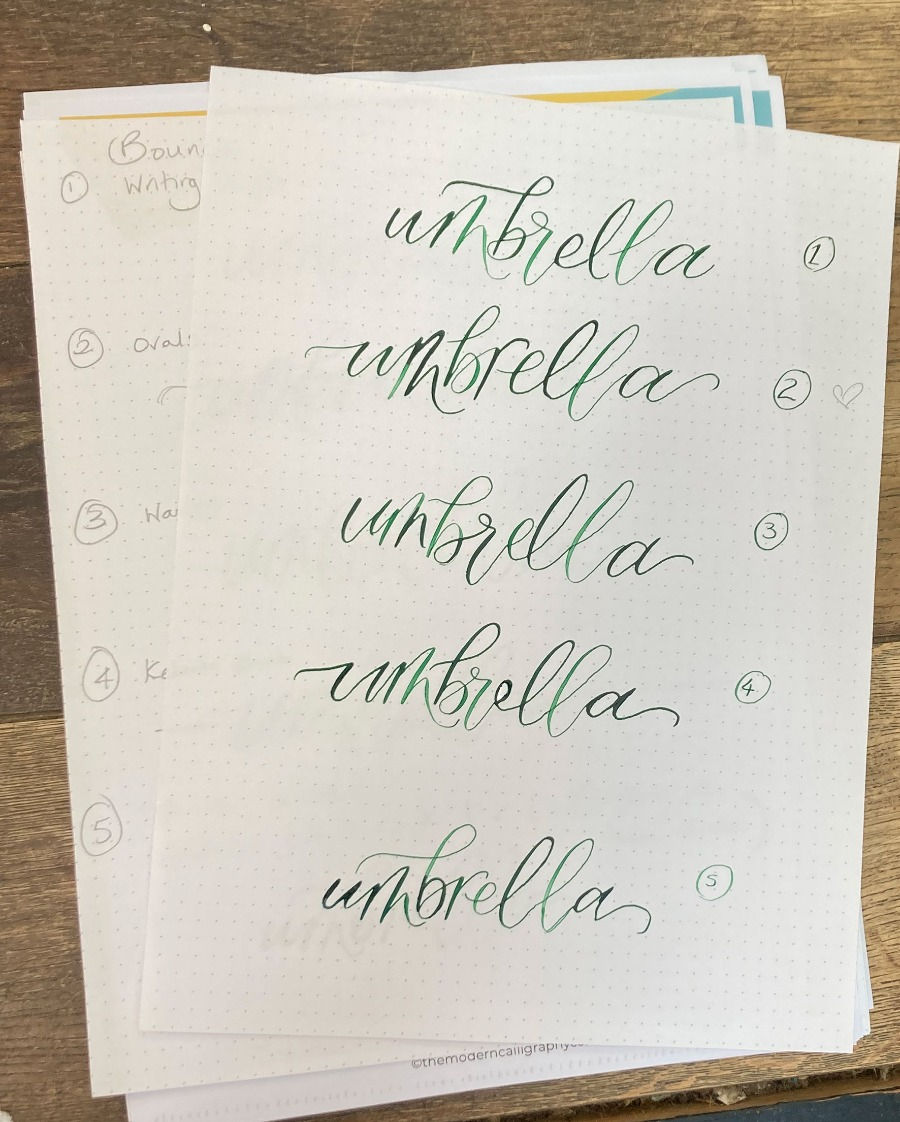 (Boun
① Writing
② oval
③ Wa
④ Ke
⑤
umbrella ①
umbrella ② ♡
umbrella ③
umbrella ④
umbrella ⑤
©themoderncalligraphy